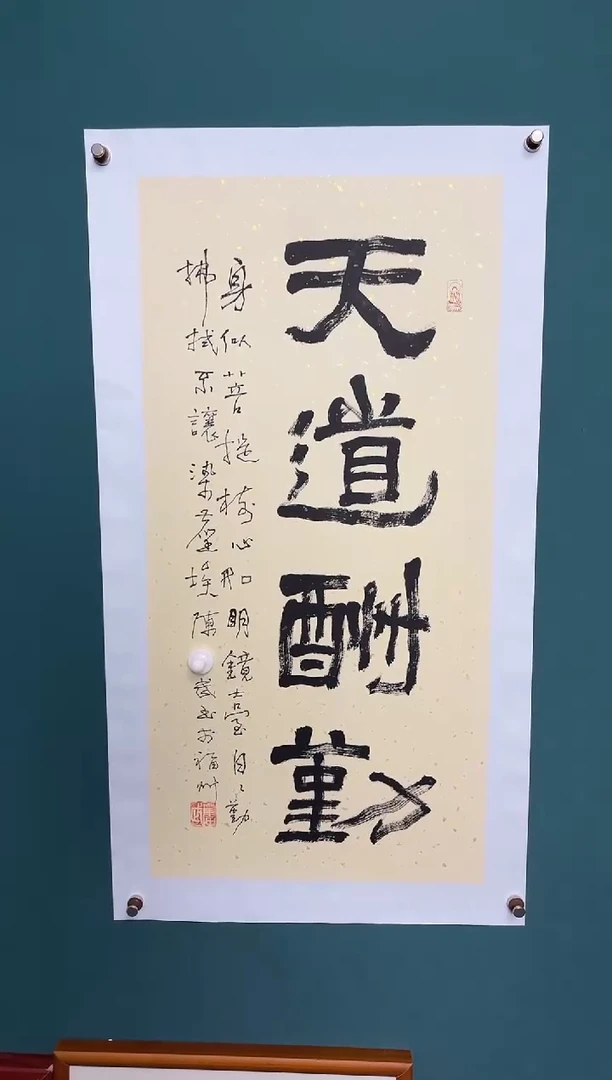 天道酬勤
身似菩提樹心如明鏡臺日々勤
拂拭不讓染塵埃陳書於福州